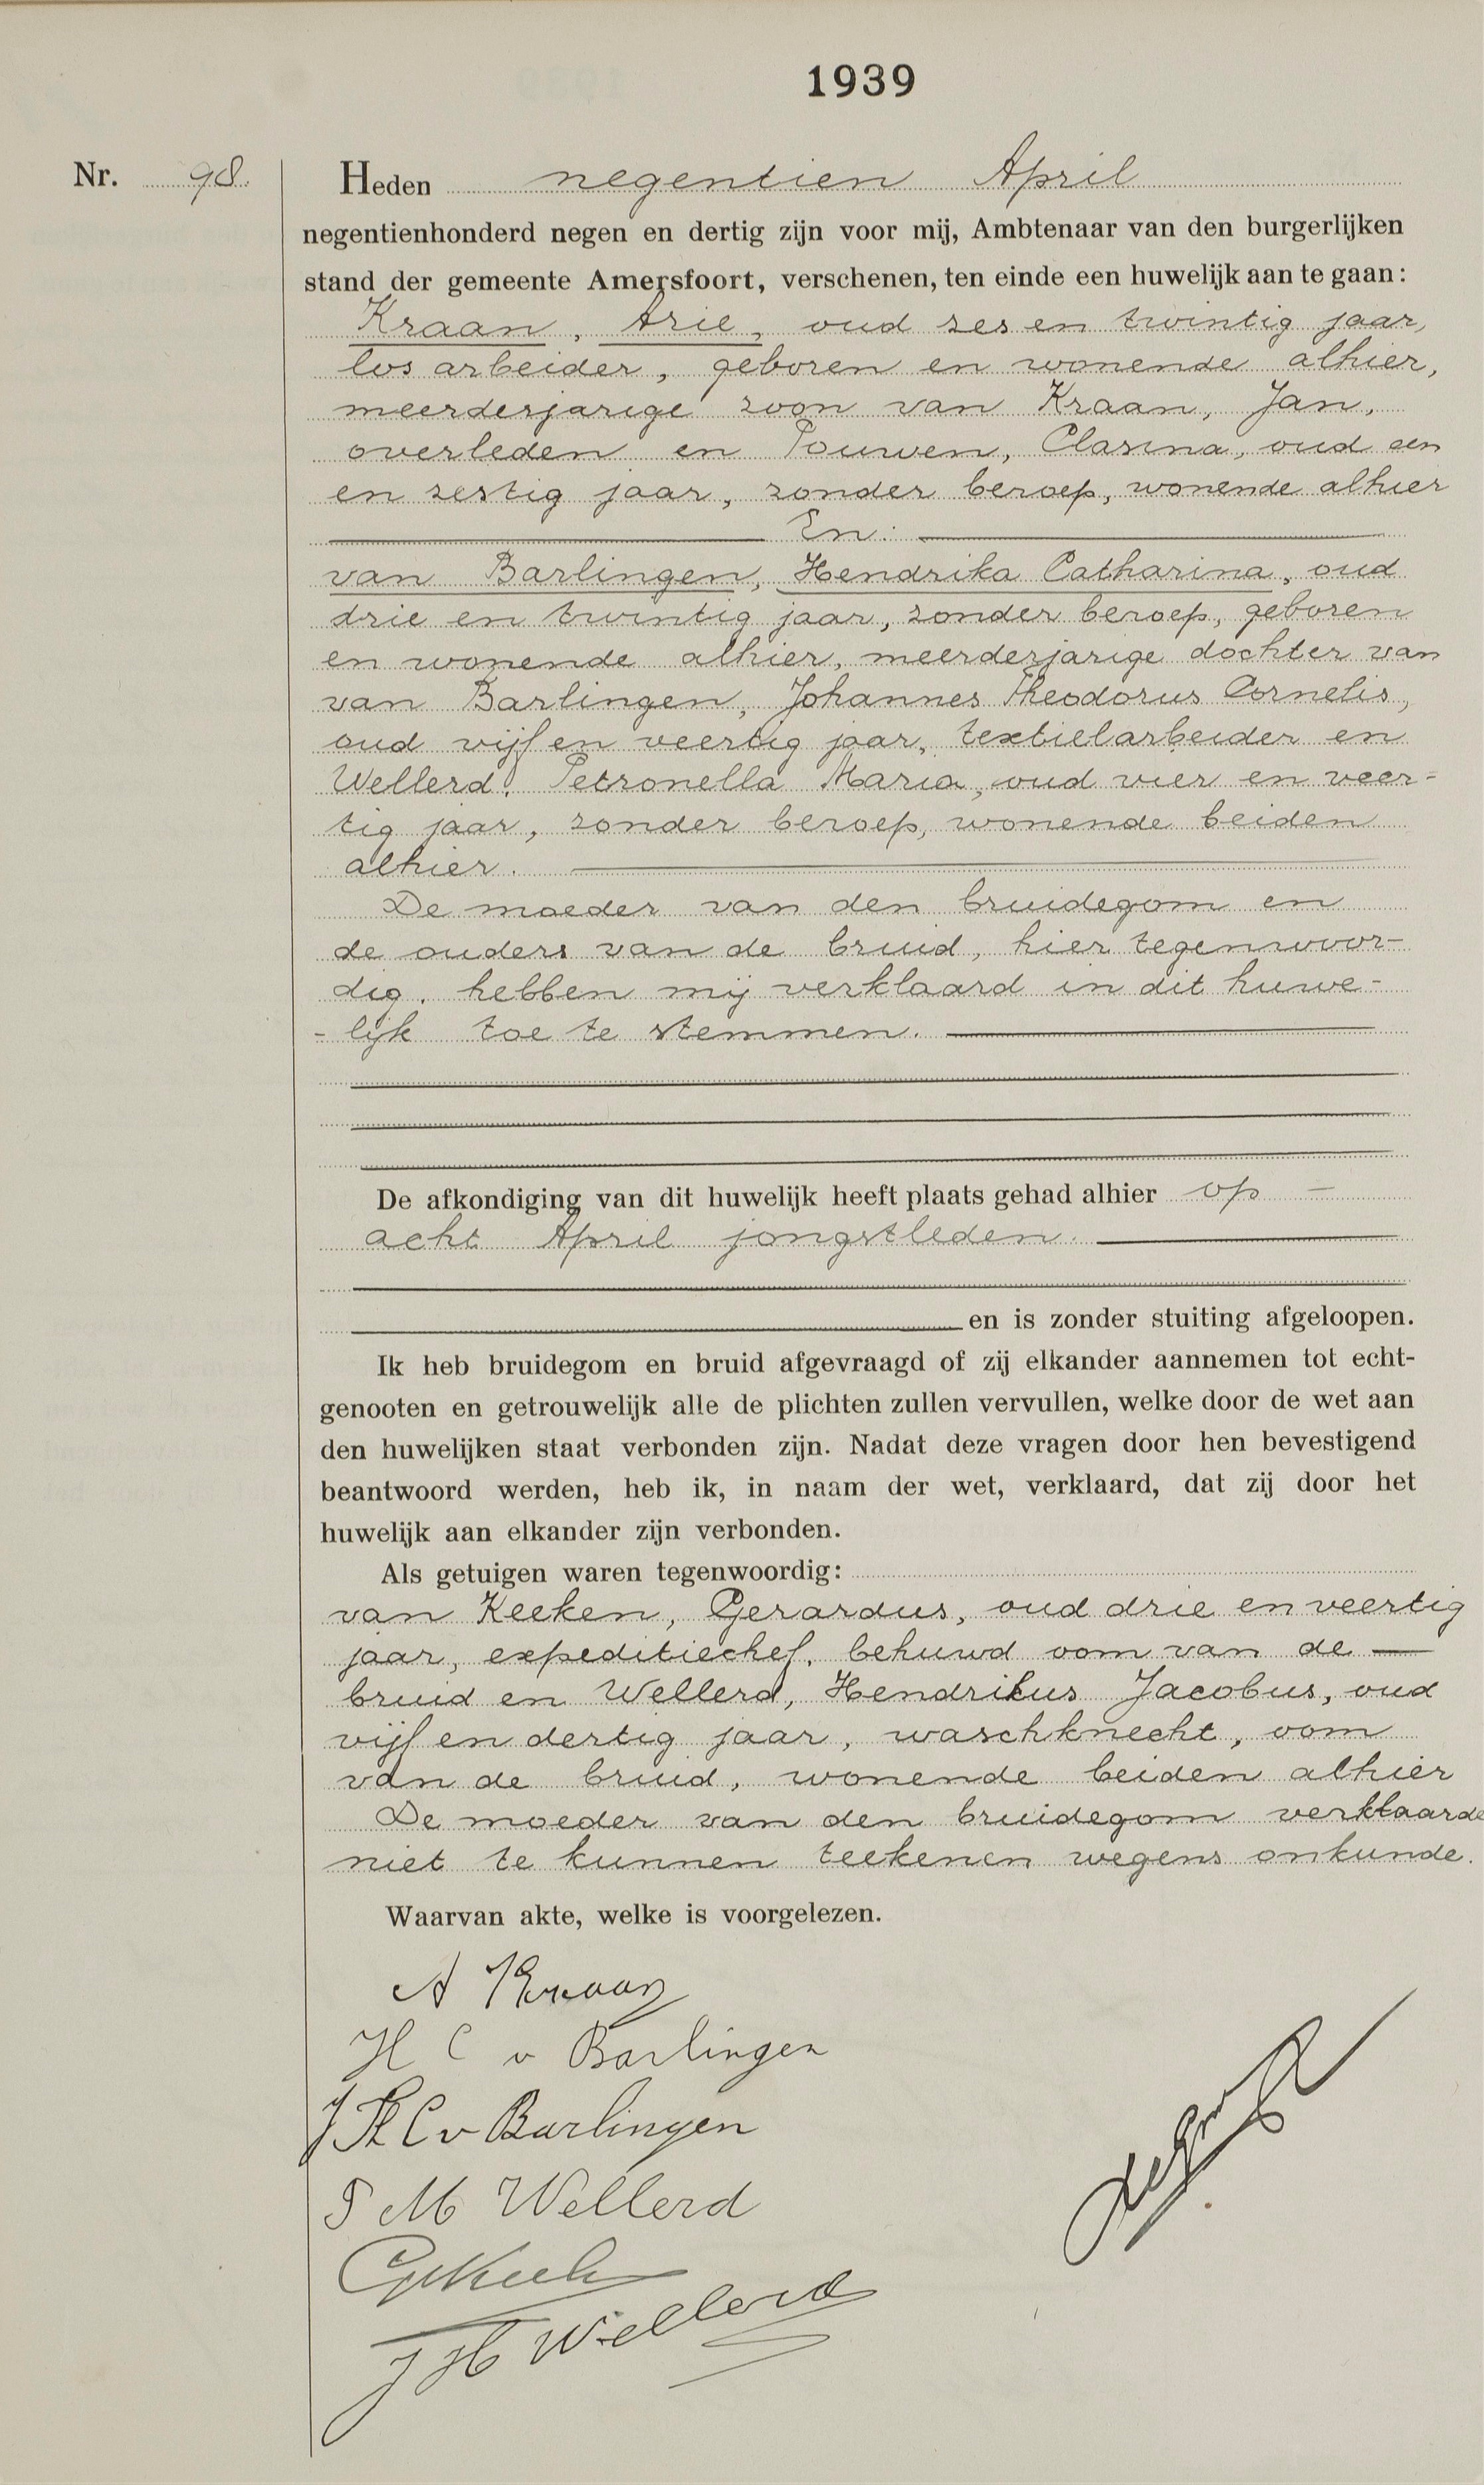 1939
Nr. 98.
Heden negentien April
negentienhonderd negen en dertig zijn voor mij, Ambtenaar van den burgerlijken
stand der gemeente Amersfoort, verschenen, ten einde een huwelijk aan te gaan:
Kraan, Arie, oud zes en twintig jaar,
los arbeider, geboren en wonende alhier,
meerderjarige zoon van Kraan, Jan,
overleden en Pouwen, Clasina, oud een
en zestig jaar, zonder beroep, wonende alhier
En:
van Barlingen, Hendrika Catharina, oud
drie en twintig jaar, zonder beroep, geboren
en wonende alhier, meerderjarige dochter van
van Barlingen, Johannes Theodorus Cornelis,
oud vijf en veertig jaar, textielarbeider en
Wellerd, Petronella Maria, oud vier en veer-
tig jaar, zonder beroep, wonende beiden
alhier.
De moeder van den bruidegom en
de ouders van de bruid, hier tegenwoor-
dig, hebben mij verklaard in dit huwe-
-lijk toe te stemmen.
De afkondiging van dit huwelijk heeft plaats gehad alhier op -
acht April jongstleden.
en is zonder stuiting afgeloopen.
Ik heb bruidegom en bruid afgevraagd of zij elkander aannemen tot echt-
genooten en getrouwelijk alle de plichten zullen vervullen, welke door de wet aan
den huwelijken staat verbonden zijn. Nadat deze vragen door hen bevestigend
beantwoord werden, heb ik, in naam der wet, verklaard, dat zij door het
huwelijk aan elkander zijn verbonden.
Als getuigen waren tegenwoordig:
van Keeken, Gerardus, oud drie en veertig
jaar, expeditiechef, behuwd oom van de
bruid en Wellerd, Hendrikus Jacobus, oud
vijf en dertig jaar, waschknecht, oom
van de bruid, wonende beiden alhier
De moeder van den bruidegom verklaarde
niet te kunnen teekenen wegens onkunde.
Waarvan akte, welke is voorgelezen.
A Kraan
H C v Barlingen
J Th C v Barlingen
P M Wellerd
J H Wellerd